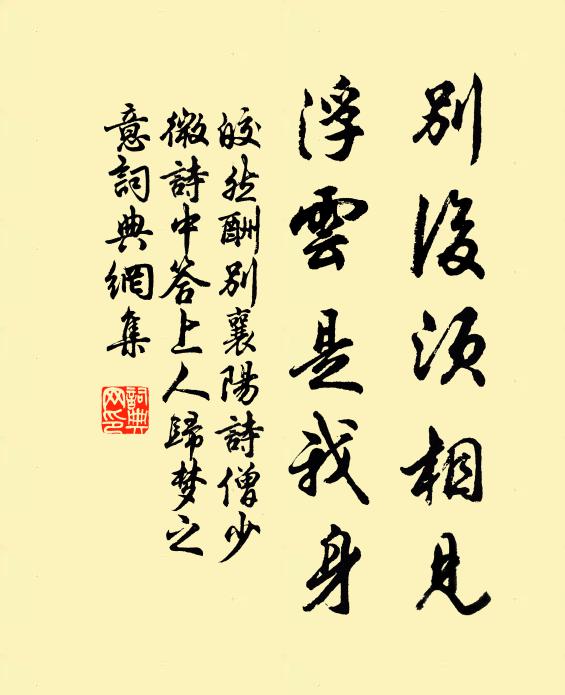 別後須相見
浮雲是我身
皎然酬別襄陽詩僧少
微詩中答上人歸梦之
意詞典網集
詞典
网印